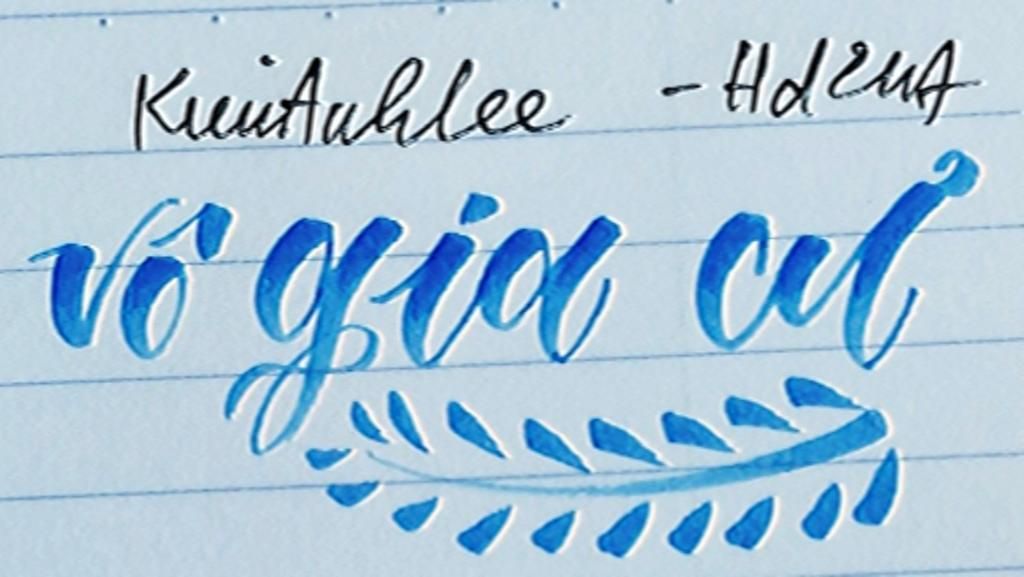 KimAnhlee
vô gia cư